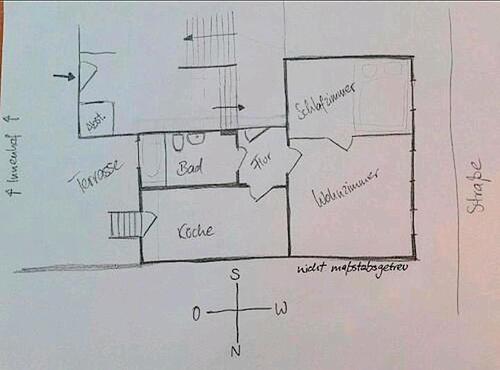 Schlafzimmer
Abst.
↑ Innenhof ↑
Terrasse
Bad
Flur
Wohnzimmer
Straße
Küche
nicht maßstabsgetreu
S
O
W
N